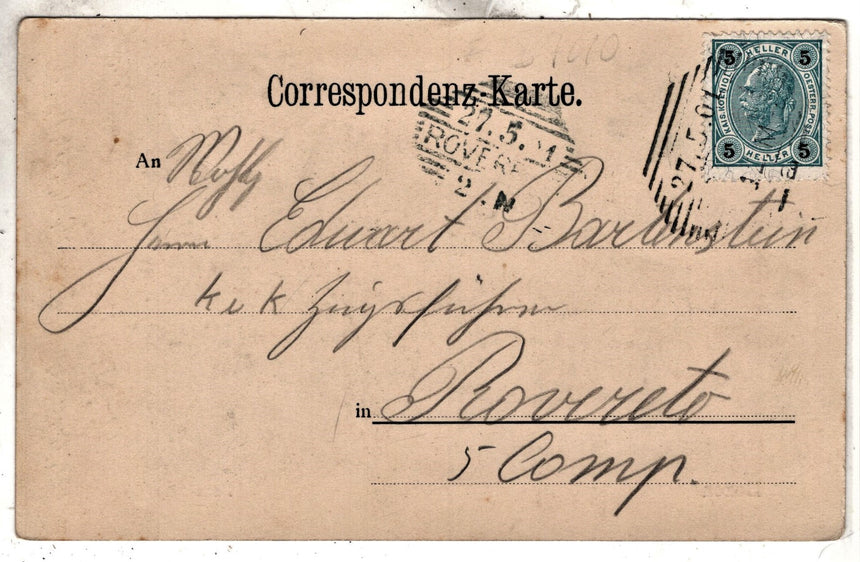 Correspondenz-Karte.
5 HELLER 5
KAIS. KÖNIGL. OESTERR. POST
5 HELLER 5
27.5.01
27.5. 1
ROVERE
2.N
An Wohlg
Herrn Eduart Bartenstein
k u k Zugsführer
in Rovereto
5 Comp.